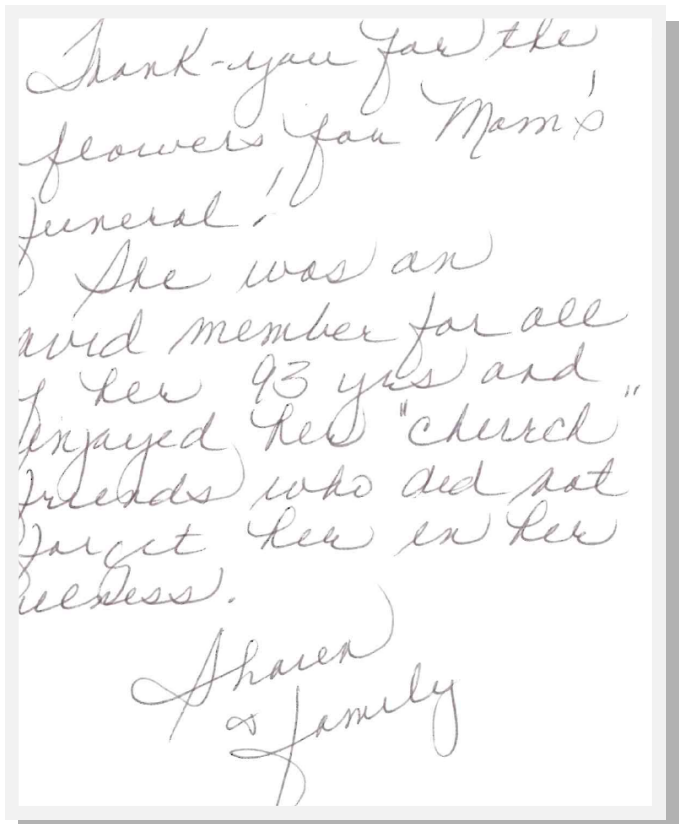 Thank-you for the
flowers for Mom's
funeral!
She was an
avid member for all
f her 93 yrs and
enjoyed her "church"
friends who did not
forget her in her
illness.
Sharen
& family